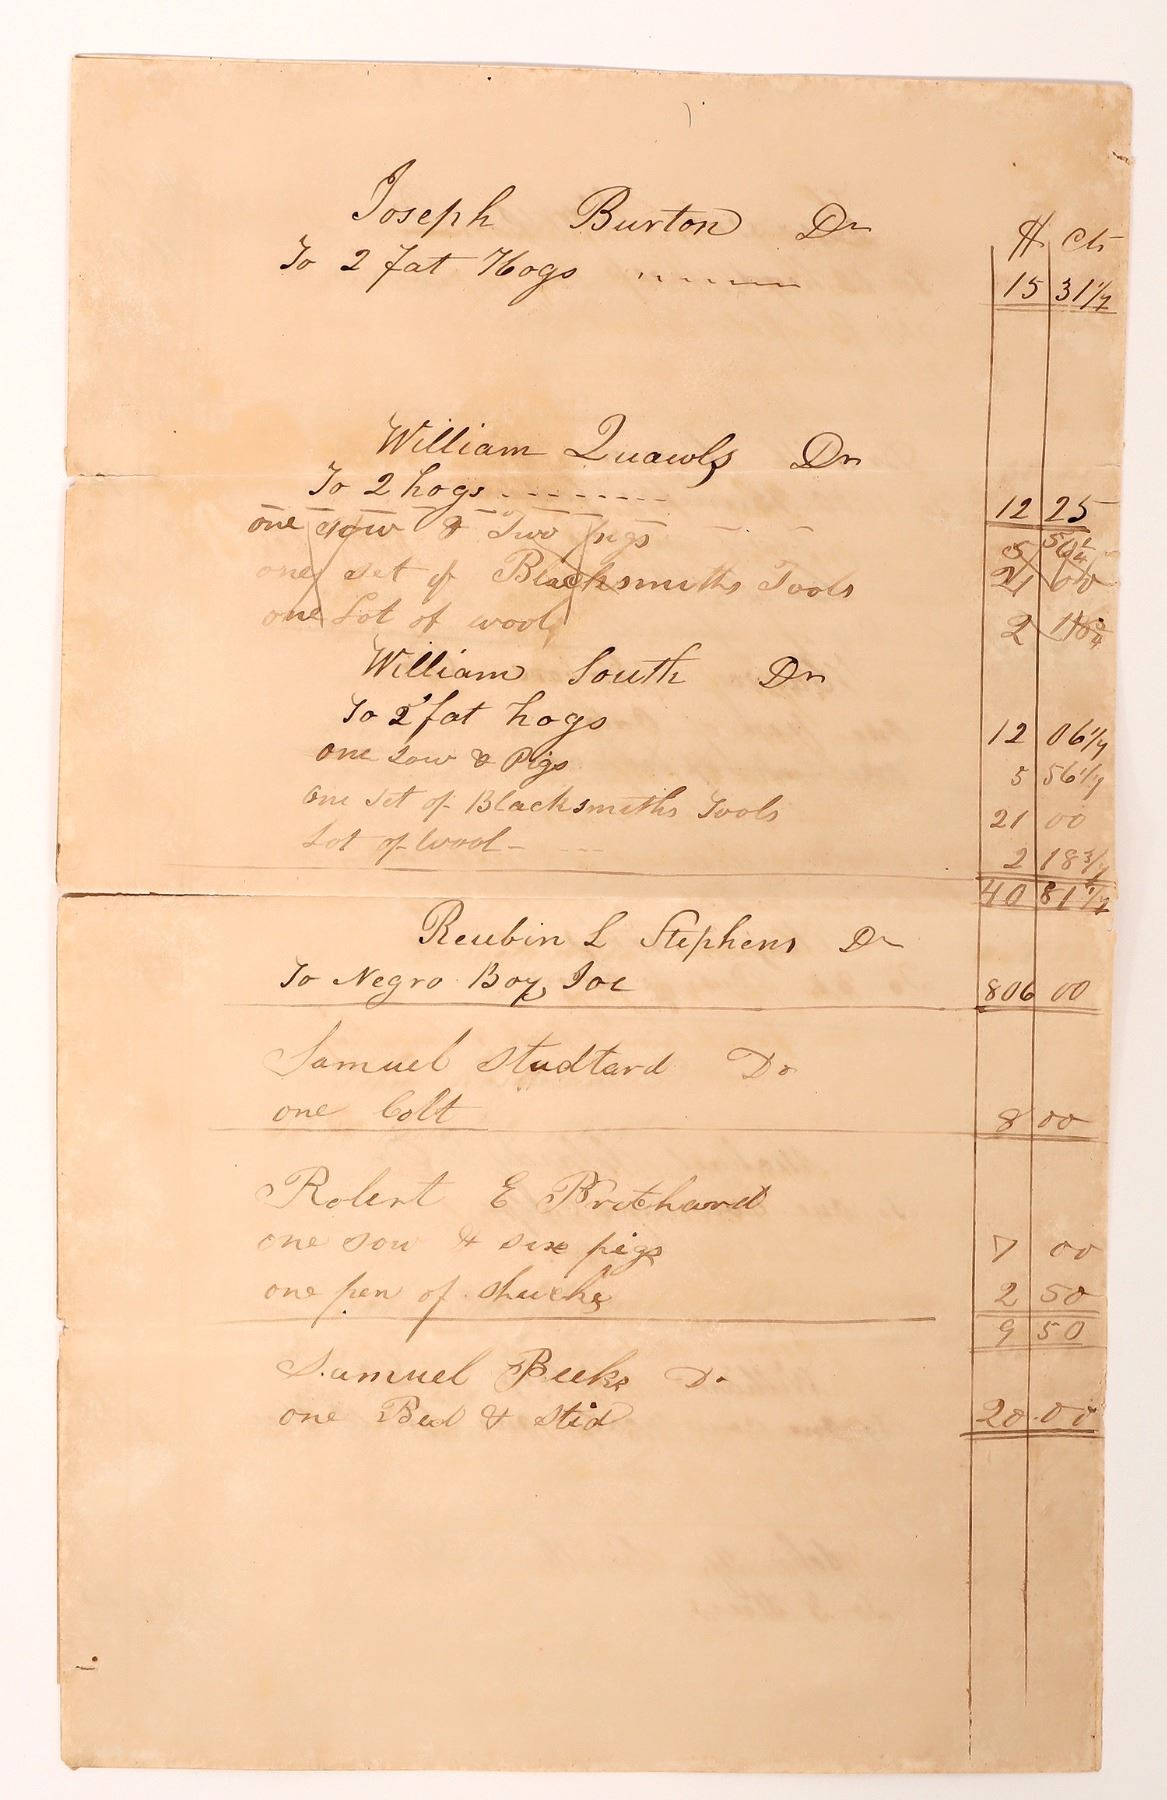 $ Cts
Joseph Burton Dr
To 2 fat Hogs 15 31 1/2
William Quawls Dr
To 2 hogs 12 25
one sow & Two pigs 5 56 1/4
one set of Blacksmiths Tools 21 00
one Lot of wool 2 18 3/4
William South Dr
To 2 fat hogs 12 06 1/4
one Sow & Pigs 5 56 1/4
one Set of Blacksmiths Tools 21 00
Lot of Wool 2 18 3/4
40 81 1/4
Reubin L Stephens Dr
To Negro Boy Joe 806 00
Samuel Studtard Dr
one Colt 8 00
Robert E Pritchard
one sow & six pigs 7 00
one pen of shucks 2 50
9 50
Samuel Beeks Dr
one Bed & Stid 20 00